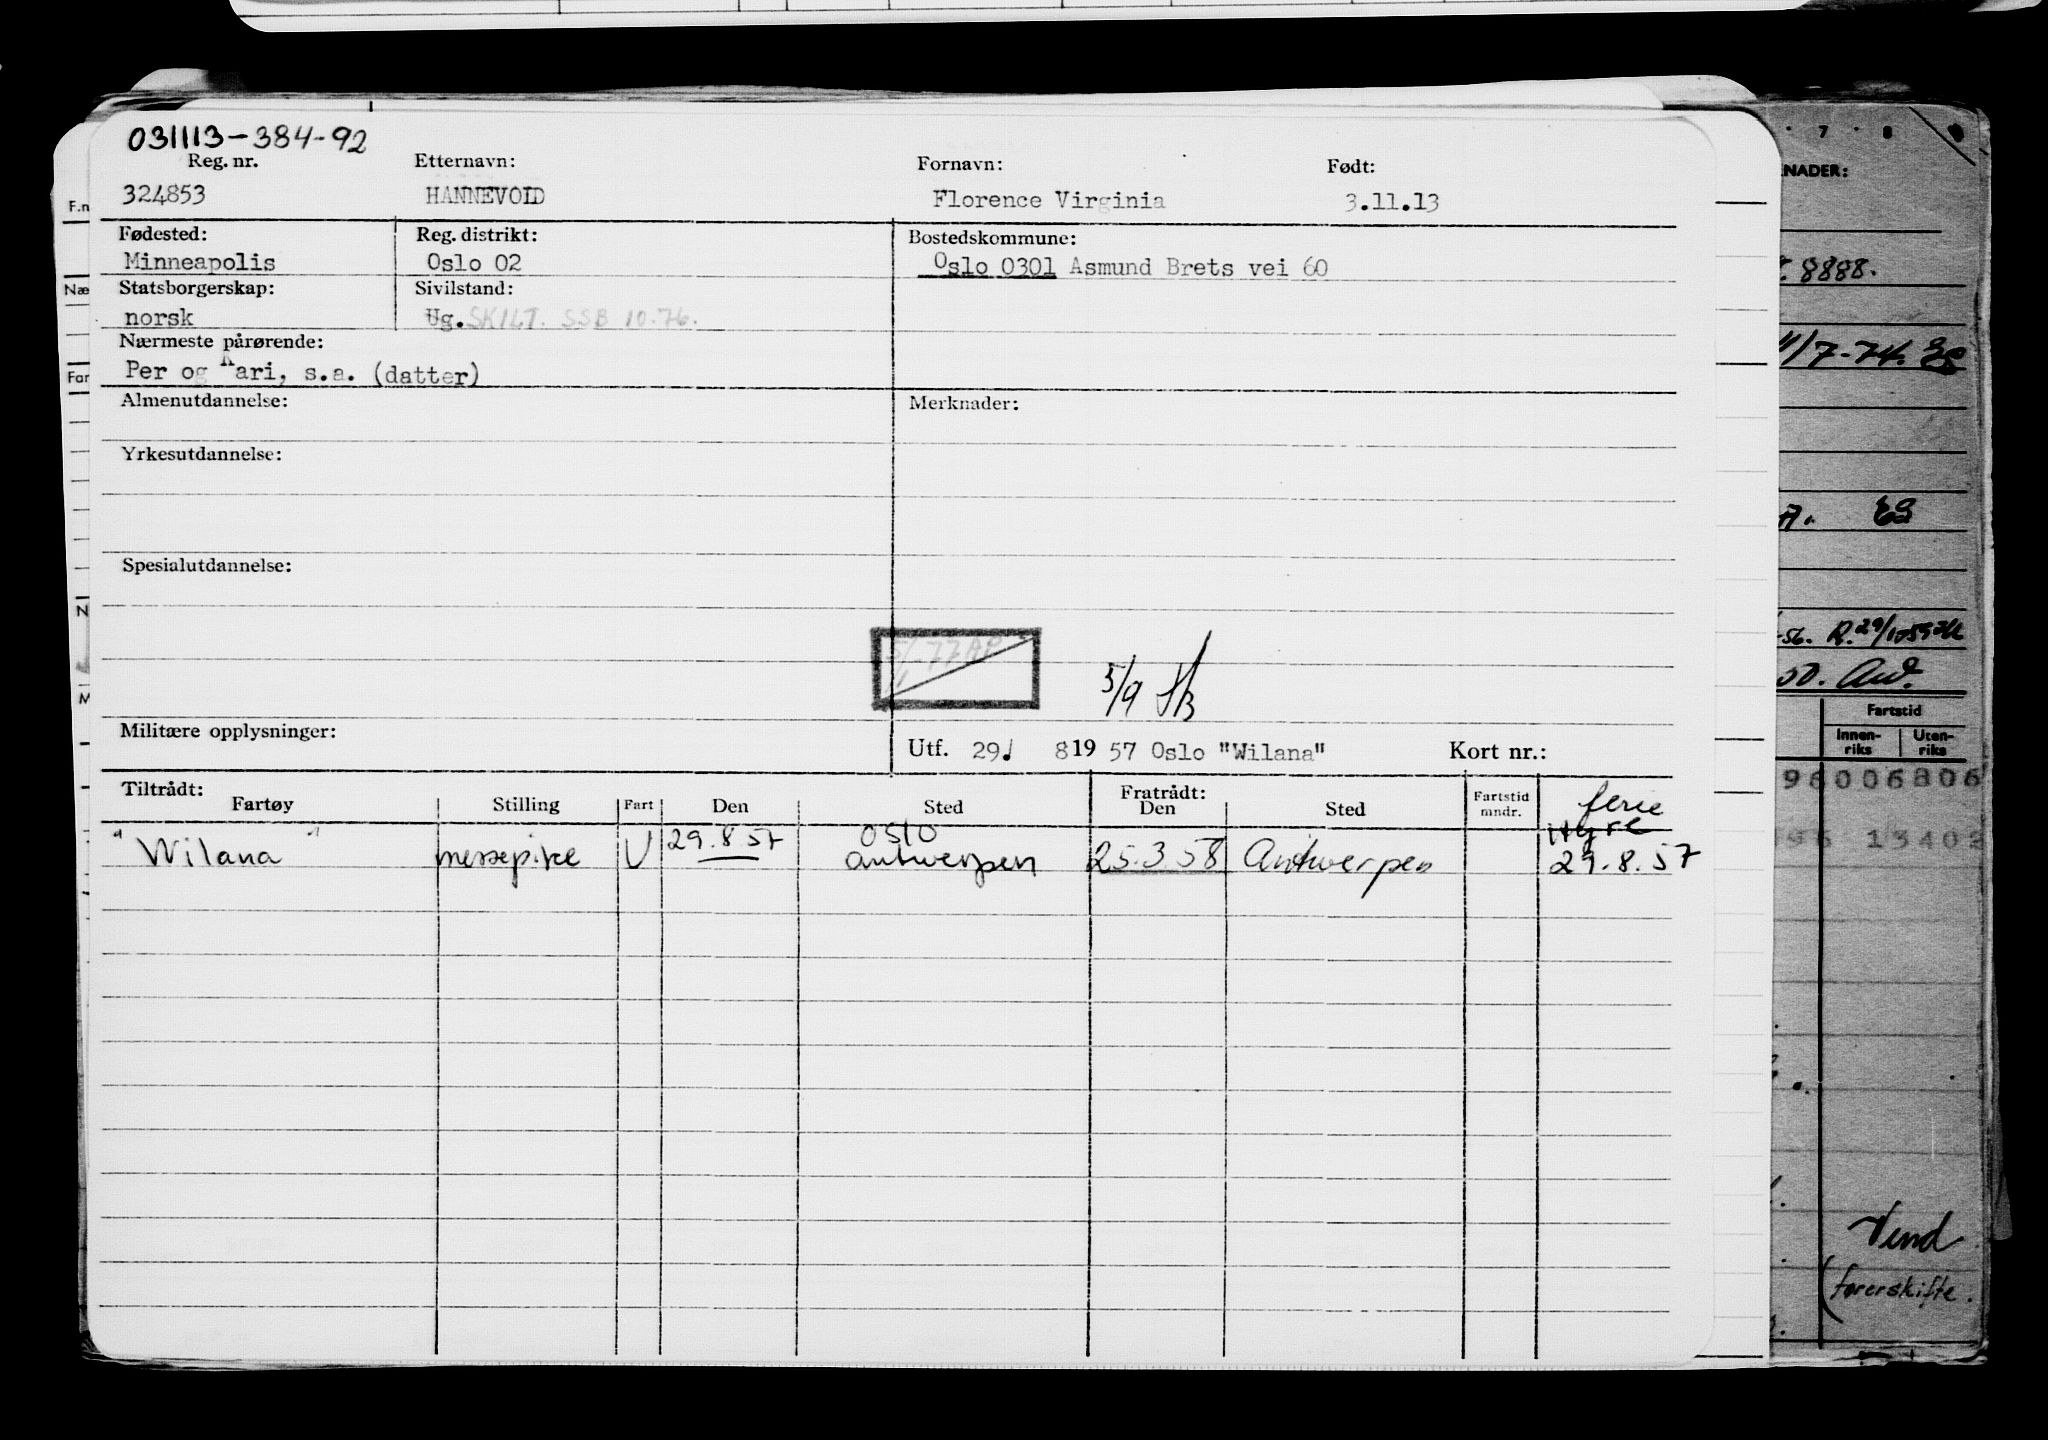 031113-384-92
Reg. nr. Etternavn: Fornavn: Født:
324853 HANNEVOLD Florence Virginia 3.11.13
Fødested: Reg. distrikt: Bostedskommune:
Minneapolis Oslo 02 Oslo 0301 Asmund Brets vei 60
Statsborgerskap: Sivilstand:
norsk Ug. SKILT. SSB 10.76.
Nærmeste pårørende:
Per og Kari, s.a. (datter)
Almenutdannelse: Merknader:
Yrkesutdannelse:
Spesialutdannelse:
5/9
Militære opplysninger:
Utf. 29/ 8 19 57 Oslo "Wilana" Kort nr.:
Tiltrådt: Fratrådt:
Fartøy Stilling Fart Den Sted Den Sted Fartstid mndr. ferie
Hyre
"Wilana" messepike U 29.8.57 Oslo
Antwerpen 25.3.58 Antwerpen 29.8.57
7 8
KNADER:
8888.
11/7-74.
Fartstid
Innen-
riks
Uten-
riks
96006806
13402
Vend
(førerskifte.
F.n
Næ
Far
N
M